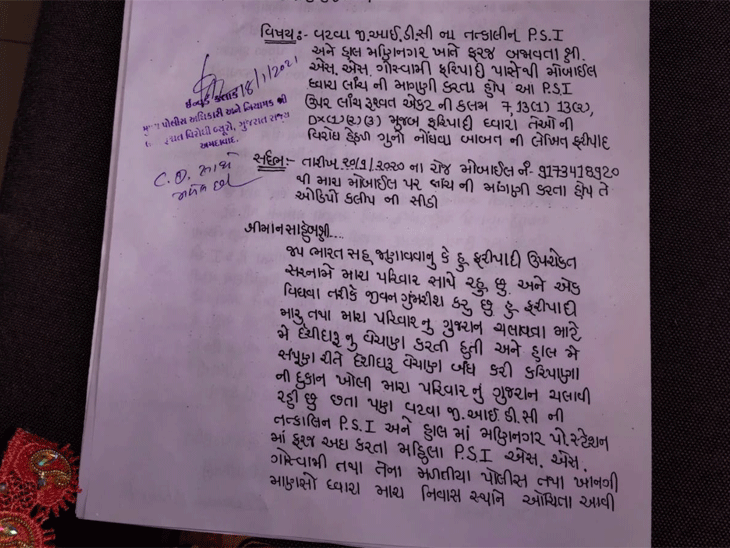 વિષયઃ- વટવા જી.આઈ.ડી.સી ના તત્કાલીન P.S.I
અને હાલ મણિનગર ખાતે ફરજ બજાવતા શ્રી.
એસ. એસ. ગોસ્વામી ફરિયાદી પાસેથી મોબાઈલ
ધ્વારા લાંચ ની માગણી કરતા હોય આ P.S.I
ઉપર લાંચ રુશ્વત એક્ટ ની કલમ 7, 13(1) 13(2),
D×(1)(2)(3) મુજબ ફરિયાદી ધ્વારા તેઓ ની
વિરોધ હેઠળ ગુનો નોંધવા બાબત ની લેખિત ફરીયાદ
18/1/2021
ઈન્વર્ડ ક્લાર્ક
પોલીસ અધિકારી અને નિયામક શ્રી
લાંચ રૂશ્વત વિરોધી બ્યુરો, ગુજરાત રાજ્ય
અમદાવાદ.
C.D. સાથે
સંદર્ભઃ- તારીખ ૨૦/૧/૨૦૨૦ ના રોજ મોબાઈલ નં- 9173418920
થી મારા મોબાઈલ પર લાંચ ની માંગણી કરતા હોય તે
ઓડિયો કલીપ ની સીડી
શ્રીમાન સાહેબશ્રી....
જય ભારત સહ જણાવવાનુ કે હુ ફરીયાદી ઉપરોક્ત
સરનામે મારા પરિવાર સાથે રહુ છુ. અને એક
વિધવા તરીકે જીવન ગુંજારીશ કરુ છુ હુ ફરીયાદી
મારુ તથા મારા પરિવાર નુ ગુજરાન ચલાવવા માટે
મે દેશીદારૂ નુ વેચાણ કરતી હતી અને હાલ મે
સંપૂણ રીતે દેશીદારૂ વેચાણ બંધ કરી કરિયાણા
ની દુકાન ખોલી મારા પરિવાર નુ ગુજરાન ચલાવી
રહી છુ છતા પણ વટવા જી.આઈ.ડી.સી ની
તત્કાલિન P.S.I અને હાલ માં મણિનગર પો.સ્ટેશન
માં ફરજ અદા કરતા મહિલા P.S.I એસ. એસ.
ગોસ્વામી તથા તેના મળતીયા પોલીસ તથા ખાનગી
માણસો ધ્વારા મારા નિવાસ સ્થાને ઓચિંતા આવી